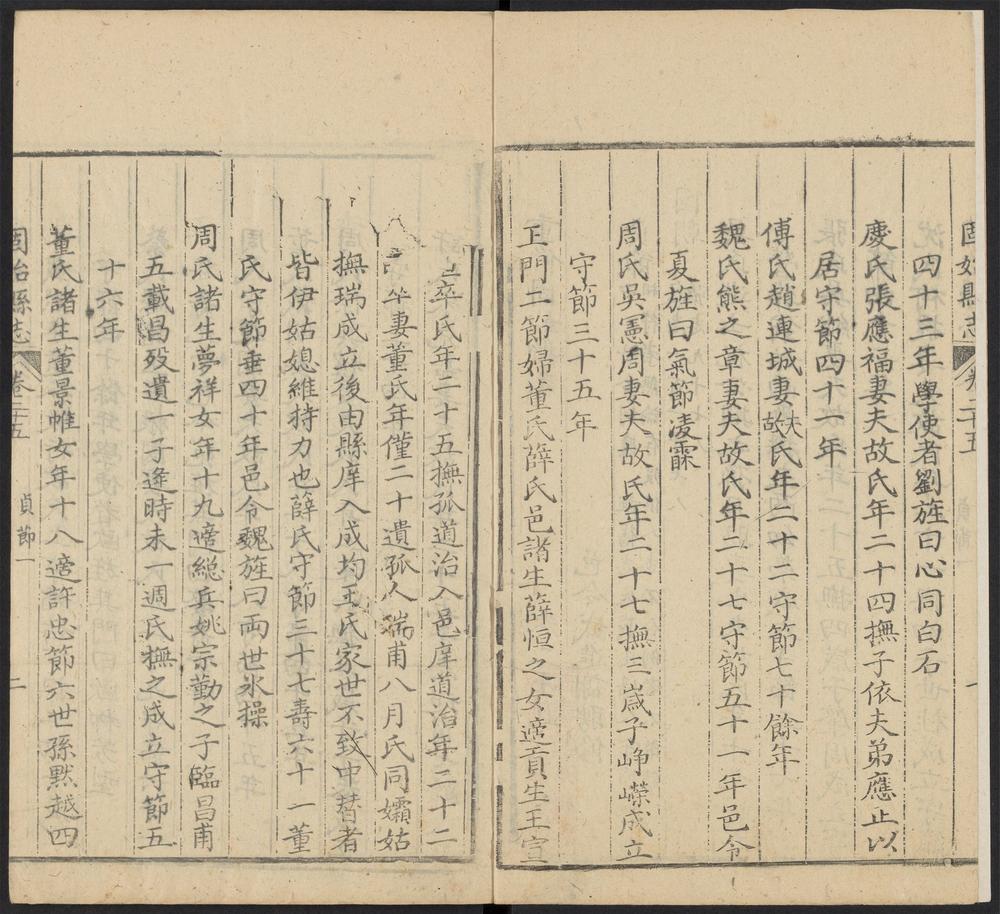 固始縣志 卷二十五
四十三年學使者劉旌曰心同白石
慶氏張應福妻夫故氏年二十四撫子依夫弟應止以
居守節四十一年
傅氏趙連城妻夫故氏年二十二守節七十餘年
魏氏熊之章妻夫故氏年二十七守節五十一年邑令
夏旌曰氣節凌霖
周氏吳憲周妻夫故氏年二十七撫三歲子崢嶸成立
守節三十五年
王門二節婦董氏薛氏邑諸生薛恒之女適貢生王宣
卒氏年二十五撫孤道治入邑庠道治年二十二
卒妻董氏年僅二十遺孤人瑞甫八月氏同孀姑
撫瑞成立後由縣庠入成均王氏家世不致中替者
皆伊姑媳維持力也薛氏守節三十七壽六十一董
氏守節垂四十年邑令魏旌曰兩世氷操
周氏諸生夢祥女年十九適總兵姚宗勤之子臨昌甫
五載昌歿遺一子逄時未一週氏撫之成立守節五
十六年
董氏諸生董景帷女年十八適許忠節六世孫默越四
固始縣志 卷二十五 貞節一 二